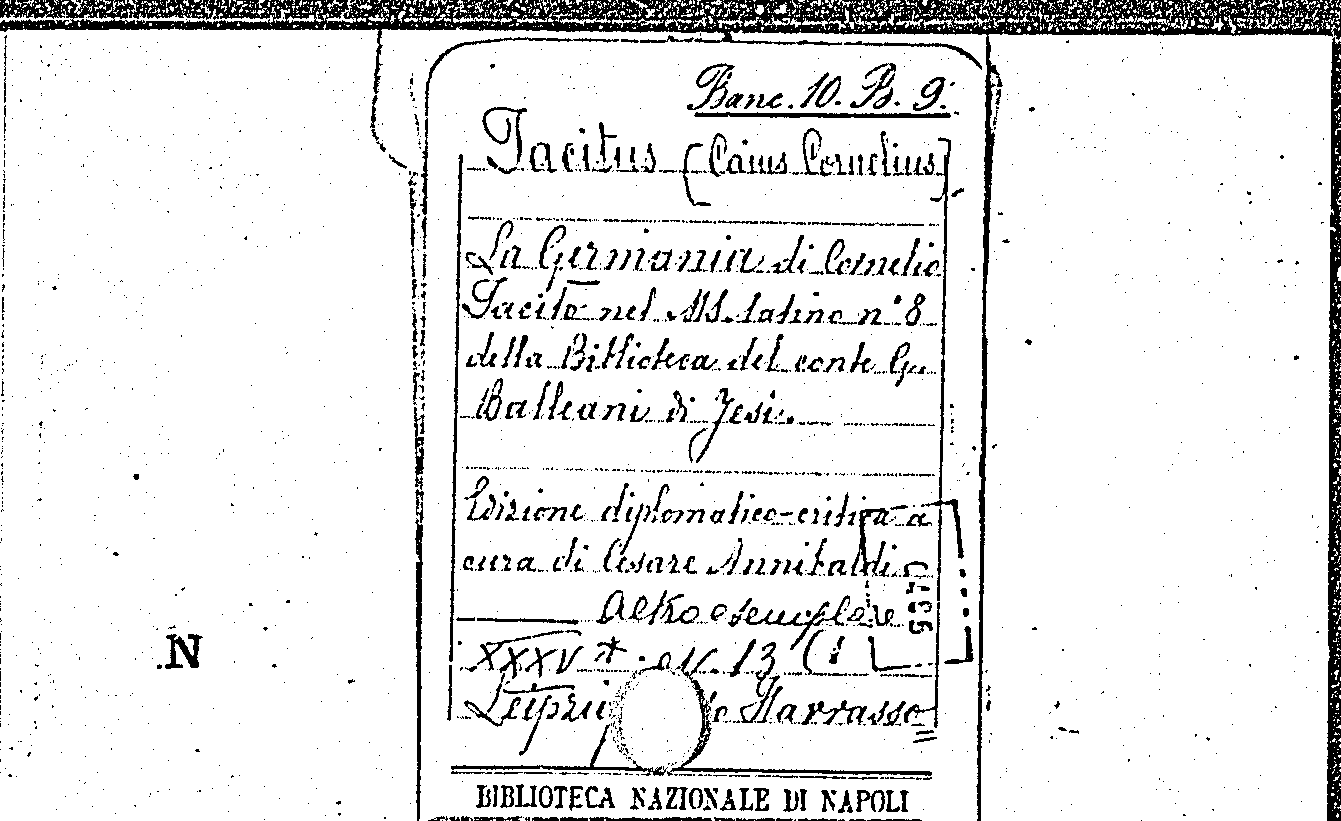 Banc. 10. B. 9.
Tacitus (Caius Cornelius)
La Germania di Cornelio
Tacito nel MS. latino n° 8
della Biblioteca del conte G.
Balleani di Jesi.
Edizione diplomatico-critica a
cura di Cesare Annibaldi
Altro esemplare
XXXV * 13 (1
Leipzi o Harrasso
N
BIBLIOTECA NAZIONALE DI NAPOLI